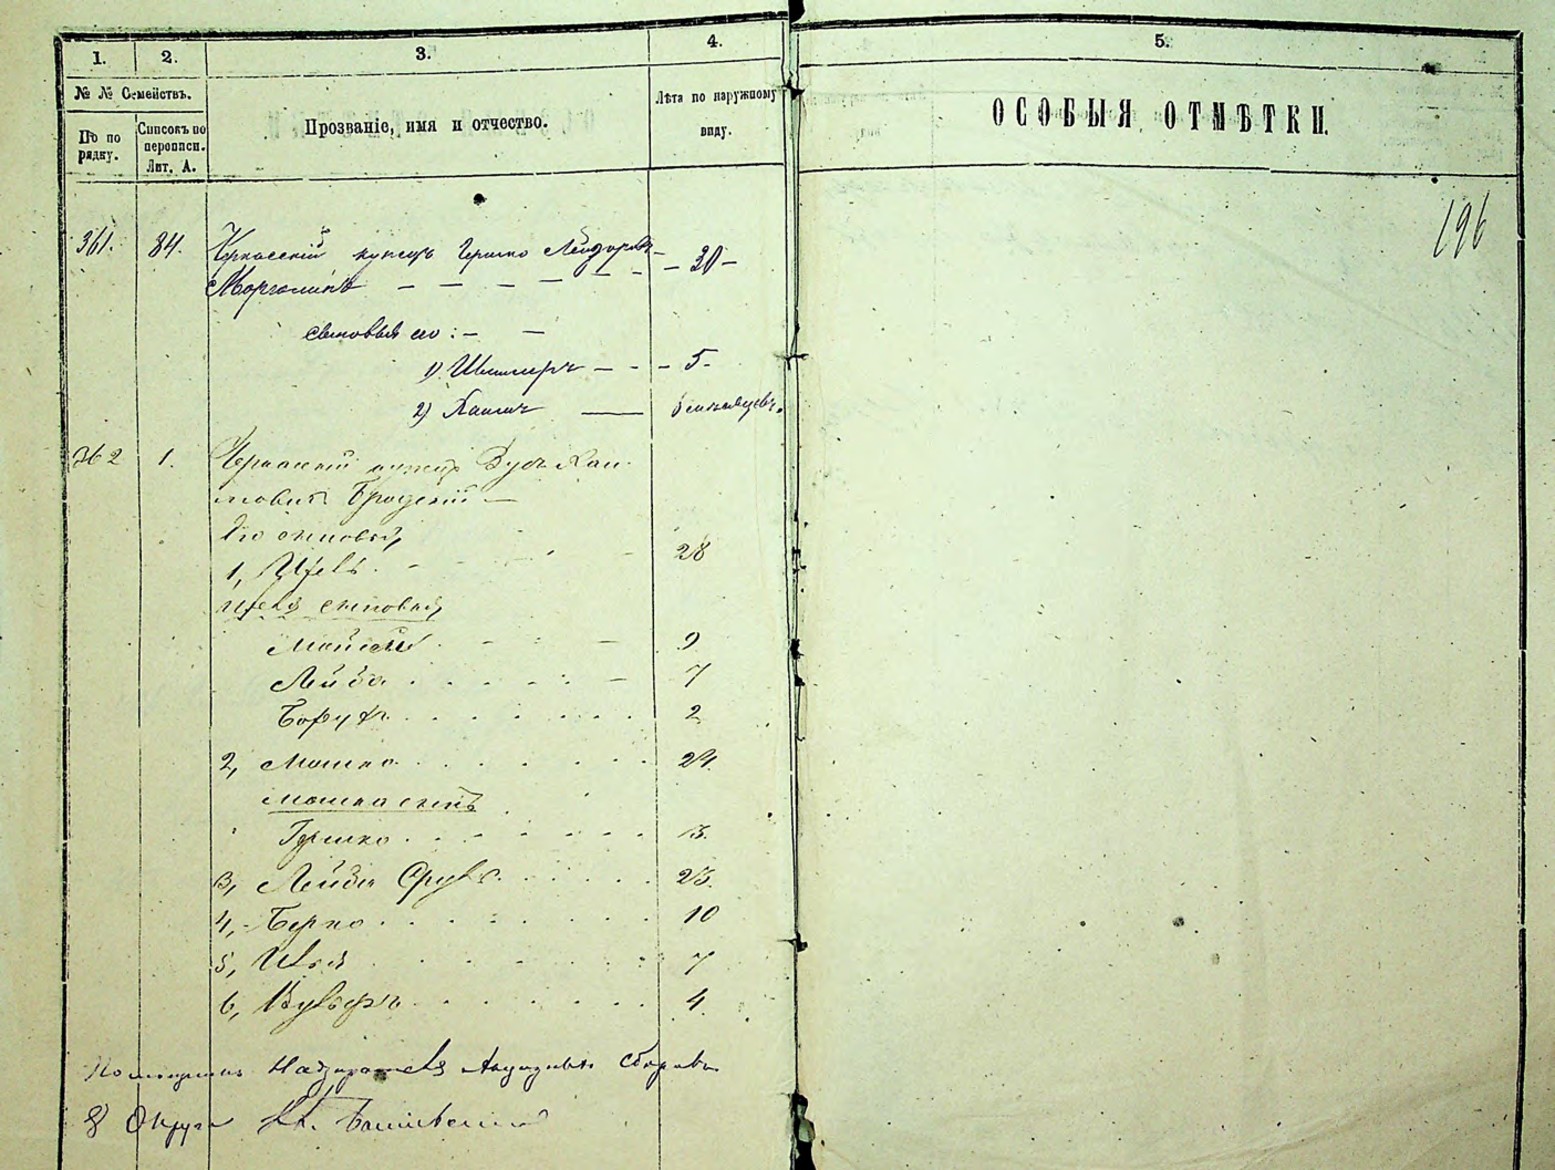 1. 2. 3. 4. 5.
№ № Семействъ.
По по рядку.
Списокъ по переписи. Лит. А.
Прозваніе, имя и отчество.
Лѣта по наружному виду.
ОСОБЫЯ ОТМѢТКИ.
196
361. 84. Черкасскій купецъ Гершко Лейзоровъ
Марголинъ — 30 —
сыновья его: —
1) — 5 -
2) Хаимъ — 6 мѣсяцевъ.
362 1. Черкаскій купецъ Зусь Хаи-
мовичъ Бродскій —
Его сыновья,
1, 28
сыновья,
9
Лейба 7
Борухъ 2
2, Мошко 24.
Мошка сынъ
Гершко 3.
3, Лейба Сруль 23.
4, Берко 10
5, 7
6, Вульфъ 4.
Помощникъ Надзирателя Акцизныхъ Сборовъ
8 Округа